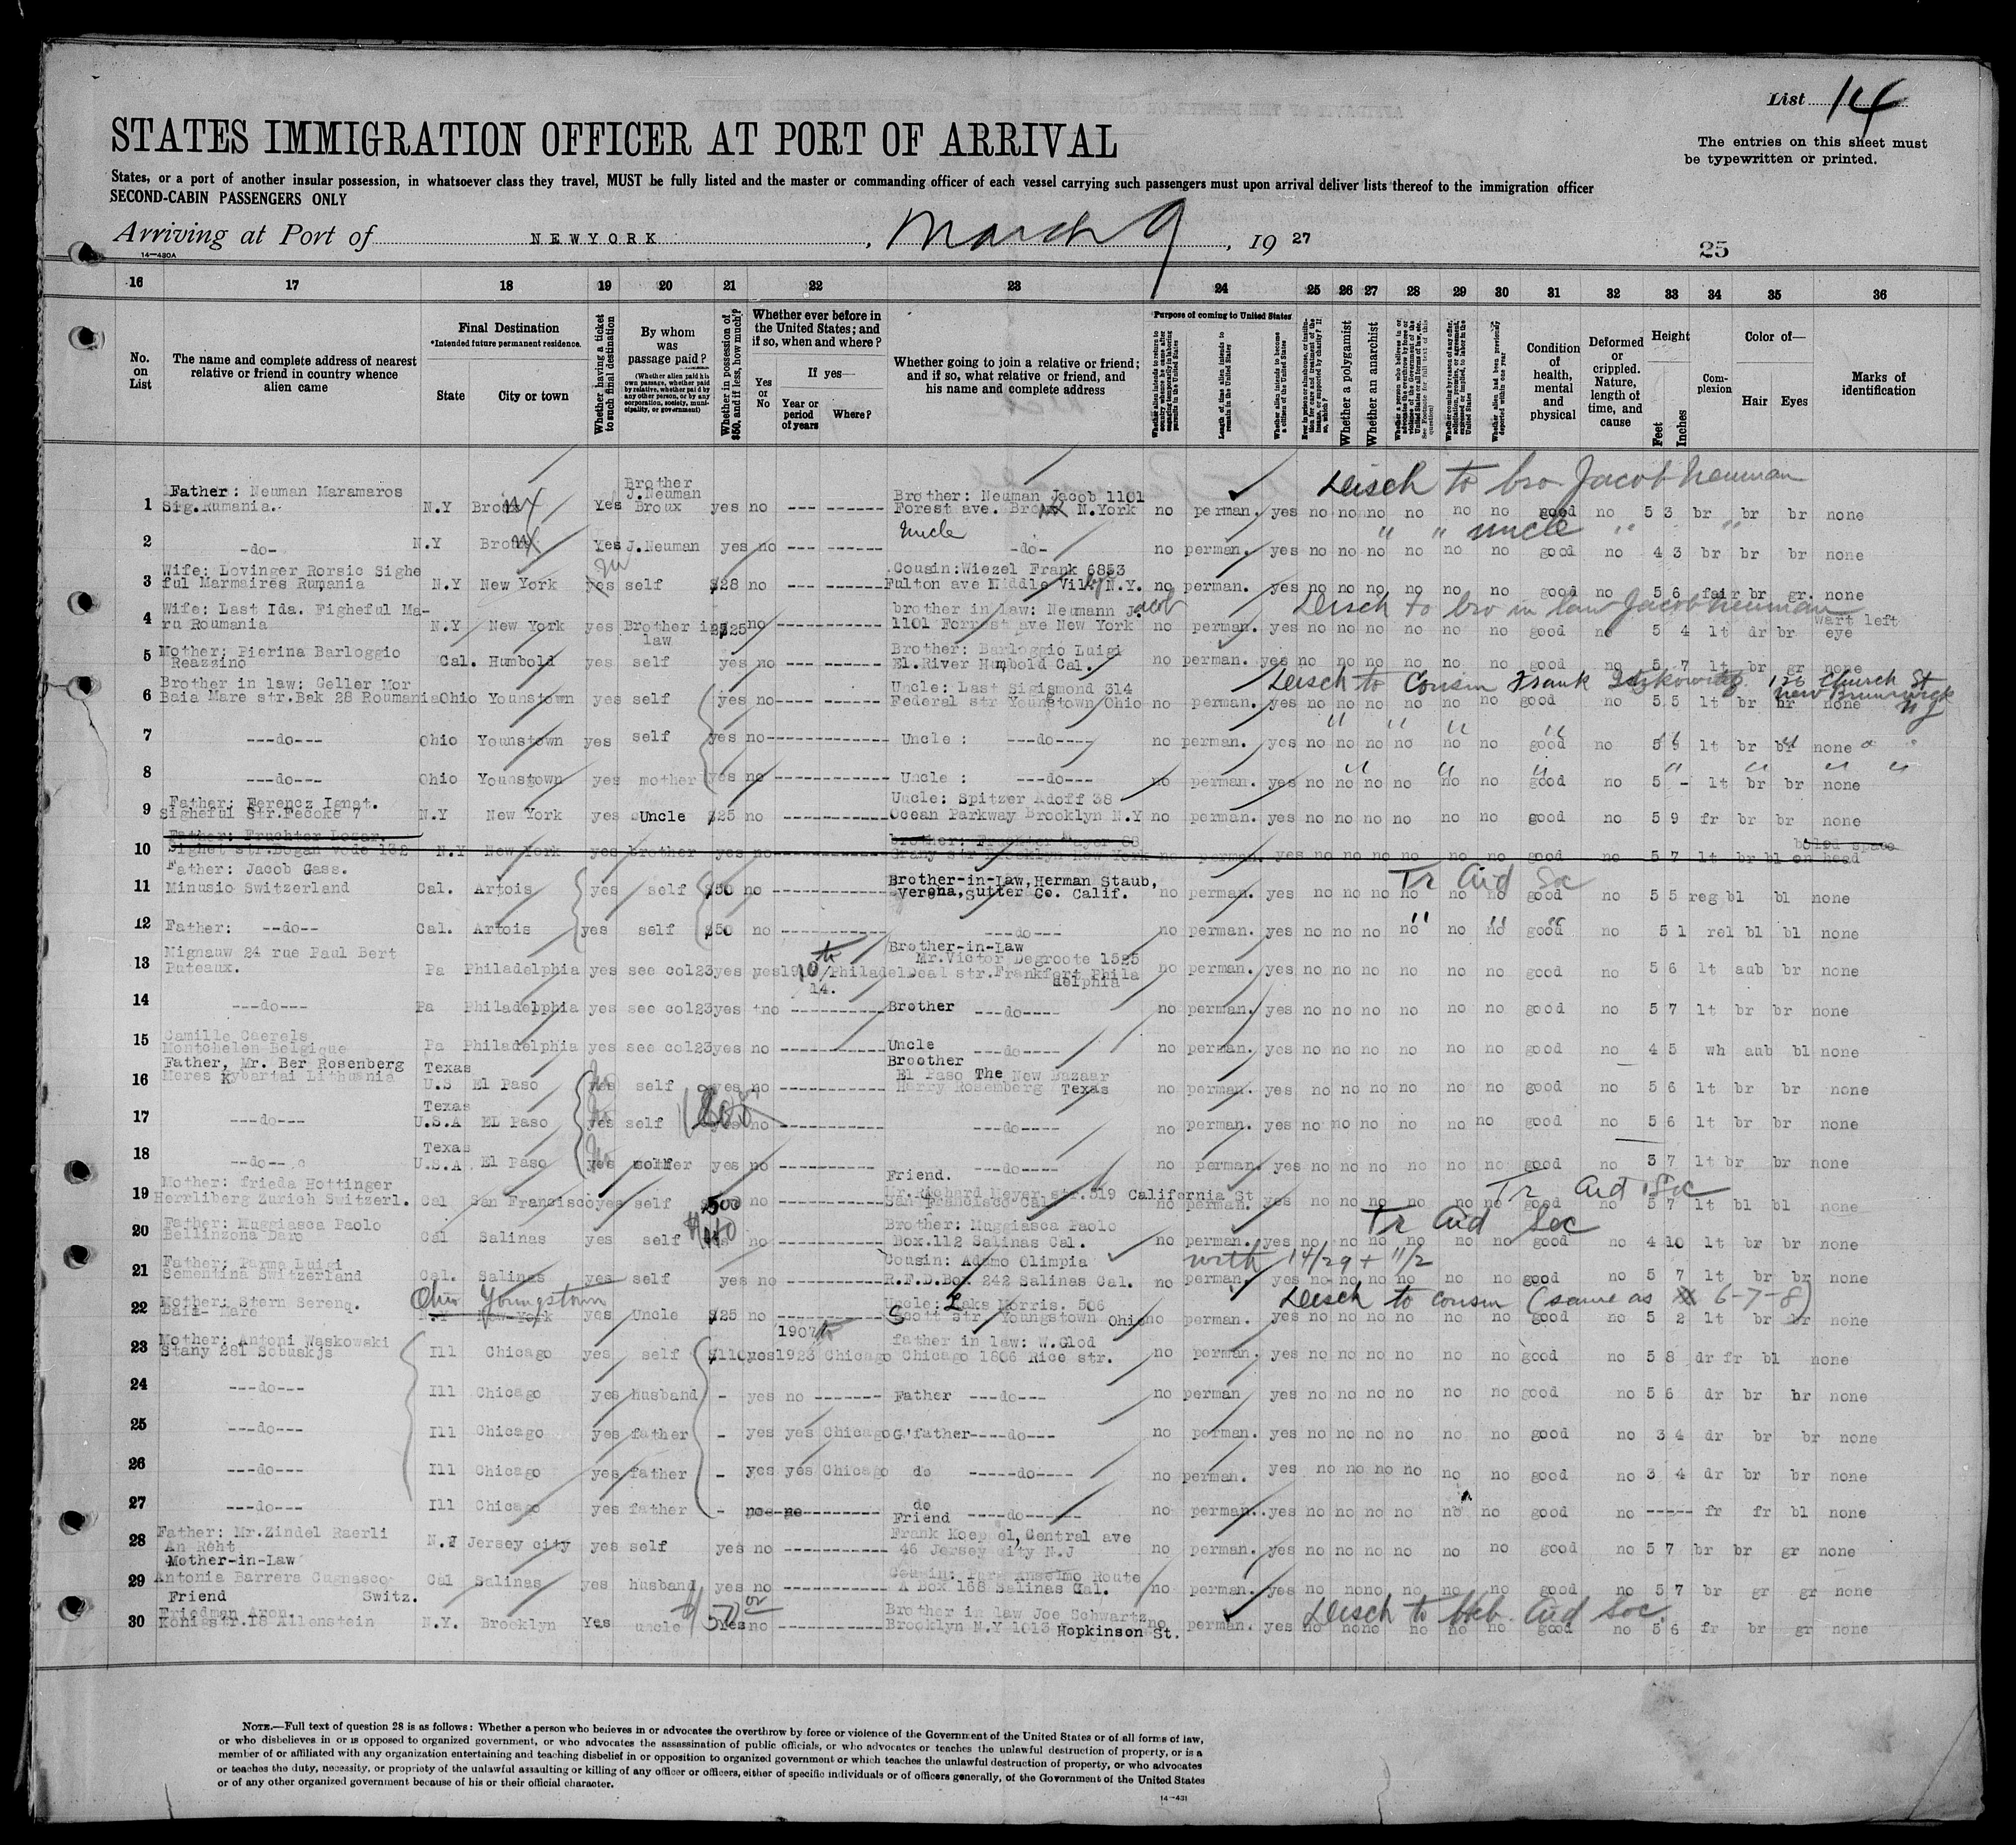 List 14
STATES IMMIGRATION OFFICER AT PORT OF ARRIVAL
The entries on this sheet must
be typewritten or printed.
States, or a port of another insular possession, in whatsoever class they travel, MUST be fully listed and the master or commanding officer of each vessel carrying such passengers must upon arrival deliver lists thereof to the immigration officer
SECOND-CABIN PASSENGERS ONLY
Arriving at Port of NEWYORK, March 9, 1927
14—430A
25
16 17 18 19 20 21 22 23 24 25 26 27 28 29 30 31 32 33 34 35 36
No. on List
The name and complete address of nearest relative or friend in country whence alien came
Final Destination
*Intended future permanent residence.
State City or town
Whether having a ticket to such final destination
By whom was passage paid?
(Whether alien paid his own passage, whether paid by relative, whether paid by any other person, or by any corporation, society, municipality, or government)
Whether in possession of $50, and if less, how much?
Whether ever before in the United States; and if so, when and where?
Yes or No
If yes—
Year or period of years Where?
Whether going to join a relative or friend; and if so, what relative or friend, and his name and complete address
Purpose of coming to United States
Whether alien intends to return to country whence he came after engaging temporarily in laboring pursuits in the United States
Length of time alien intends to remain in the United States
Whether alien intends to become a citizen of the United States
Whether a polygamist
Whether an anarchist
Condition of health, mental and physical
Deformed or crippled. Nature, length of time, and cause
Height
Feet Inches
Complexion
Color of—
Hair Eyes
Marks of identification
Disch to bro Jacob Neuman
1 Father: Neuman Maramaros Sig.Rumania. N.Y Yes Brother J.Neuman Broux yes no --- ------ Brother: Neuman Jacob 1101 Forest ave. N.York no perman. yes no no no no no no good no 5 3 br br br none
" " uncle " "
2 -do- N.Y Yes J.Neuman yes no --- ------ Uncle -do- no perman. yes no no no no no no good no 4 3 br br br none
3 Wife: Lovinger Rorsic Sighe ful Marmaires Rumania N.Y New York yes self $28 no --- ------ Cousin:Wiezel Frank 6853 Fulton ave Middle Vil N.Y. no perman. yes no no no no no no good no 5 6 fair br gr. none
Disch to bro in law Jacob Neuman
4 Wife: Last Ida. Figheful Ma- ru Roumania N.Y New York yes Brother in law $25 no ----------- brother in law: Neumann Jacob 1101 Forrest ave New York no perman. yes no no no no no no good no 5 4 lt dr br wart left eye
5 Mother: Pierina Barloggio Reazzino Cal. Humbold yes self yes no --- ------ Brother: Barloggio Luigi El.River Humbold Cal. no perman. yes no no no no no no good no 5 7 lt br gr none
Disch to Cousin Frank Church St New Brunswick NJ
6 Brother in law: Geller Mor Baia Mare str.Bak 28 Roumania Ohio Younstown yes self yes no---- ------ Uncle: Last Sigismond 314 Federal str Youngstown Ohio no perman. yes no no no no no no good no 5 5 lt br br none
7 ---do--- Ohio Younstown yes self yes no----------- Uncle : ---do---- no perman. yes no no no no no no good no lt br none
8 ---do--- Ohio Younstown yes mother yes no ----------- Uncle : ---do--- no perman. yes no no no no no no good no 5 - lt br br none
9 Father: Ferencz Ignat. Sigheful Str.Fecoke 7 N.Y New York yes Uncle $25 no ----------- Uncle: Spitzer Adoff 38 Ocean Parkway Brooklyn N.Y no perman. yes no no no no no no good no 5 9 fr br br none
10 Father: Fruchter Lozar. Sighet str.Bogan vode 132 N.Y New York yes brother yes no----------- Brooklyn New York no perman. yes no no no no no no good no 5 7 lt br bl on head
Tr Aid Soc
11 Father: Jacob Gass. Minusio Switzerland Cal. Artois yes self $50 no ----------- Brother-in-Law, Herman Staub, verona, Sutter Co. Calif. no perman. yes no no no no no no good no 5 5 reg bl bl none
12 Father: --do-- Cal. Artois yes self $50 no ----------- ---do--- no perman. yes no no no no no no good no 5 1 rel bl bl none
13 Mignauw 24 rue Paul Bert Puteaux. Pa Philadelphia yes see col23 yes yes 1910/14. Philadel Brother-in-Law Mr.Victor Degroote 1525 Deal str.Frankfort Phila delphia no perman. yes no no no no no no good no 5 6 lt aub br none
14 ---do--- Pa Philadelphia yes see col23 yes no ----------- Brother ---do---- no perman. yes no no no no no no good no 5 7 lt br br none
15 Camille Caerels Montchelen Belgique Pa Philadelphia yes see col23 yes no ----------- Uncle ---do---- no perman. yes no no no no no no good no 4 5 wh aub bl none
16 Father, Mr. Ber Rosenberg Meres Kybartai Lithuania Texas U.S El Paso yes self yes no ----------- Broother El Paso The New Bazaar Harry Rosemberg Texas no perman. yes no no no no no no good no 5 6 lt br br none
17 ---do--- Texas U.S.A EL Paso yes self yes no ----------- ---do---- no perman. yes no no no no no no good no 5 6 lt br br none
18 ---do--- Texas U.S.A. El Paso yes yes no ----------- ---do---- no perman. yes no no no no no no good no 3 7 lt br br none
Tr Aid Soc
19 Mother: frieda Hottinger Herrliberg Zurich Suitzerl. Cal San Fransisco yes self 500 no ----------- Friend. Mr.Richard Meyer str.519 California St San Francisco Cal. no perman. yes no no no no no no good no 5 7 lt bl bl none
Tr Aid Soc
20 Father: Muggiasca Paolo Bellinzona Daro Cal Salinas yes self no ----------- Brother: Muggiasca Paolo Box.112 Salinas Cal. no perman. yes no no no no no no good no 4 10 lt br br none
with 14/29 + 11/2
21 Father: Parma Luigi Sementina Switzerland Cal. Salinas yes self yes no ----------- Cousin: Adamo Olimpia R.F.D.Box 242 Salinas Cal. no perman. yes no no no no no no good no 5 7 lt br br none
Ohio Youngstown Disch to cousin (same as 6-7-8)
22 Mother: Stern Serenq. Baia- Mare N.Y New York yes Uncle $25 no ----------- Uncle: Laks Morris. 506 Scott str Youngstown Ohio no perman. yes no no no no no no good no 5 2 lt br br none
23 Mother: Antoni Waskowski Stany 281 Sobuskjs Ill Chicago yes self $110 yes 1907 1923 Chicago father in law: W.Glod Chicago 1806 Rice str. no perman. yes no no no no no no good no 5 8 dr fr bl none
24 ---do--- Ill Chicago yes husband - yes no ------- Father ---do--- no perman yes no no no no no no good no 5 6 dr br br none
25 ---do--- Ill Chicago yes father - yes yes Chicago G'father----do--- no perman. yes no no no no no no good no 3 4 dr br br none
26 ---do--- Ill Chicago yes father - yes yes Chicago do -----do---- no perman. yes no no no no no no good no 3 4 dr br br none
27 ---do--- Ill Chicago yes father - no no----------- do ----do------ no perman. yes no no no no no no good no ----- fr fr bl none
28 Father: Mr.Zindel Raerli An Reht N.J Jersey city yes self yes no ----------- Friend Frank Koeppel, Central ave 46 Jersey city N.J no perman. yes no no no no no no good no 5 7 br br gr none
29 Mother-in-Law Antonia Barrera Cugnasco Switz. Cal Salinas yes husband yes no ----------- Cousin: Anselmo Route A Box 168 Salinas Cal. no perman. yes no no no no no no good no 5 7 br gr gr none
Disch to Heb. Aid Soc.
30 Friend Friedman Aron Königstr.18 Allenstein N.Y. Brooklyn Yes uncle yes no ----------- Brother in law Joe Schwartz Brooklyn N.Y 1013 Hopkinson St. no perman. yes no no no no no no good no 5 6 fr br gr none
NOTE.—Full text of question 28 is as follows: Whether a person who believes in or advocates the overthrow by force or violence of the Government of the United States or of all forms of law,
or who disbelieves in or is opposed to organized government, or who advocates the assassination of public officials, or who advocates or teaches the unlawful destruction of property, or is a
member of or affiliated with any organization entertaining and teaching disbelief in or opposition to organized government or which teaches the unlawful destruction of property, or who advocates
or teaches the duty, necessity, or propriety of the unlawful assaulting or killing of any officer or officers, either of specific individuals or of officers generally, of the Government of the United States
or of any other organized government because of his or their official character.
14—431